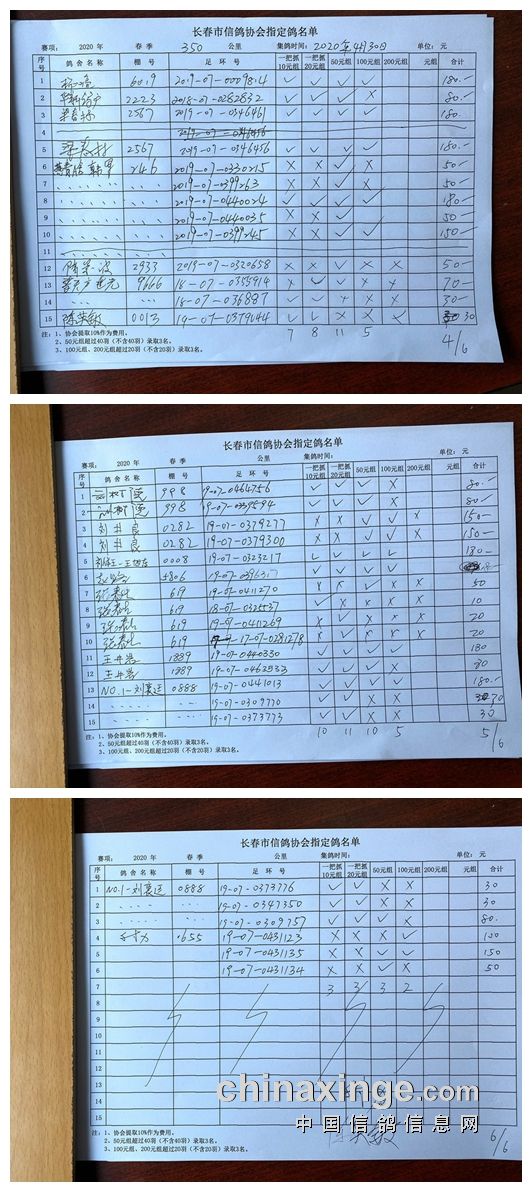 长春市信鸽协会指定鸽名单
赛项： 2020 年 春 季 350 公里 集鸽时间： 2020年4月30日 单位： 元
序号 鸽 舍 名 称 棚 号 足 环 号 一把抓10元组 一把抓20元组 50元组 100元组 200元组 元组 合计
1 6019 2019-07-0009804 ✓ ✓ ✓ ✓ 180.-
2 2223 2018-07-0282832 ✓ ✓ ✓ X 80.-
3 2567 2019-07-0346461 ✓ ✓ ✓ ✓ 180.
4 2019-07-0346456
5 2567 2019-07-0346456 ✓ ✓ ✓ ✓ 180.-
6 246 2019-07-0330215 X X ✓ X 50.-
7 2019-07-0399263 X X ✓ X 50.-
8 2019-07-0440024 ✓ ✓ ✓ ✓ 180.-
9 2019-07-0440035 X X ✓ X 50.-
10 2019-07-0399245 X X ✓ ✓ 150.-
11
12 2933 2019-07-0320658 X X ✓ X X 50.-
13 9666 18-07-0355914 X ✓ ✓ X X 70.-
14 18-07-036887 ✓ ✓ X X X 30.-
15 陈英敏 0013 19-07-0379044 ✓ ✓ X X ✓ 30
7 8 11 5 4/6
注： 1、协会提取10%作为费用。
2、50元组超过40羽（不含40羽）录取3名。
3、100元组、200元组超过20羽（不含20羽）录取3名。
长春市信鸽协会指定鸽名单
赛项： 2020 年 春 季 公里 集鸽时间： 单位： 元
序号 鸽 舍 名 称 棚 号 足 环 号 一把抓10元组 一把抓20元组 50元组 100元组 200元组 元组 合计
1 998 19-07-0464756 ✓ ✓ ✓ X 80.-
2 998 19-07-0359594 ✓ ✓ ✓ 80.-
3 刘井良 0282 19-07-0379277 X X ✓ ✓ 150-
4 刘井良 0282 19-07-0379300 X X ✓ ✓ 150.-
5 0008 19-07-0323217 ✓ ✓ ✓ ✓ 180.-
6 5806 19-07-0396317 ✓ ✓ ✓ X
7 张春 619 19-07-0411270 X X ✓ X X 50
8 张春 619 18-07-0325537 ✓ X X X X 10
9 张春 619 19-07-0411269 X ✓ X X X 20
10 张春 619 17-07-0281278 X ✓ X X X 20
11 1889 19-07-0440330 ✓ ✓ ✓ ✓ 180
12 1889 19-07-0463533 ✓ ✓ ✓ X 80
13 NO.1-刘 0888 19-07-0441013 ✓ ✓ ✓ ✓ 180.-
14 19-07-0309770 ✓ ✓ X X 30
15 19-07-0373773 ✓ ✓ X X 30
10 11 10 5 5/6
注： 1、协会提取10%作为费用。
2、50元组超过40羽（不含40羽）录取3名。
3、100元组、200元组超过20羽（不含20羽）录取3名。
长春市信鸽协会指定鸽名单
赛项： 2020 年 春 季 公里 集鸽时间： 单位： 元
序号 鸽 舍 名 称 棚 号 足 环 号 一把抓10元组 一把抓20元组 50元组 100元组 200元组 元组 合计
1 NO.1-刘 0888 19-07-0373776 ✓ ✓ X X 30
2 19-07-0347350 ✓ ✓ X X 30
3 19-07-0309757 ✓ ✓ ✓ X 80.
4 655 19-07-0431123 X X X ✓ 100
5 19-07-0431135 X X ✓ ✓ 150
6 19-07-0431134 X X ✓ X 50
7 3 3 3 2
8
9
10
11
12
13
14
15
注： 1、协会提取10%作为费用。
2、50元组超过40羽（不含40羽）录取3名。
3、100元组、200元组超过20羽（不含20羽）录取3名。
陈英敏
6/6
chinaxinge.com
中国信鸽信息网